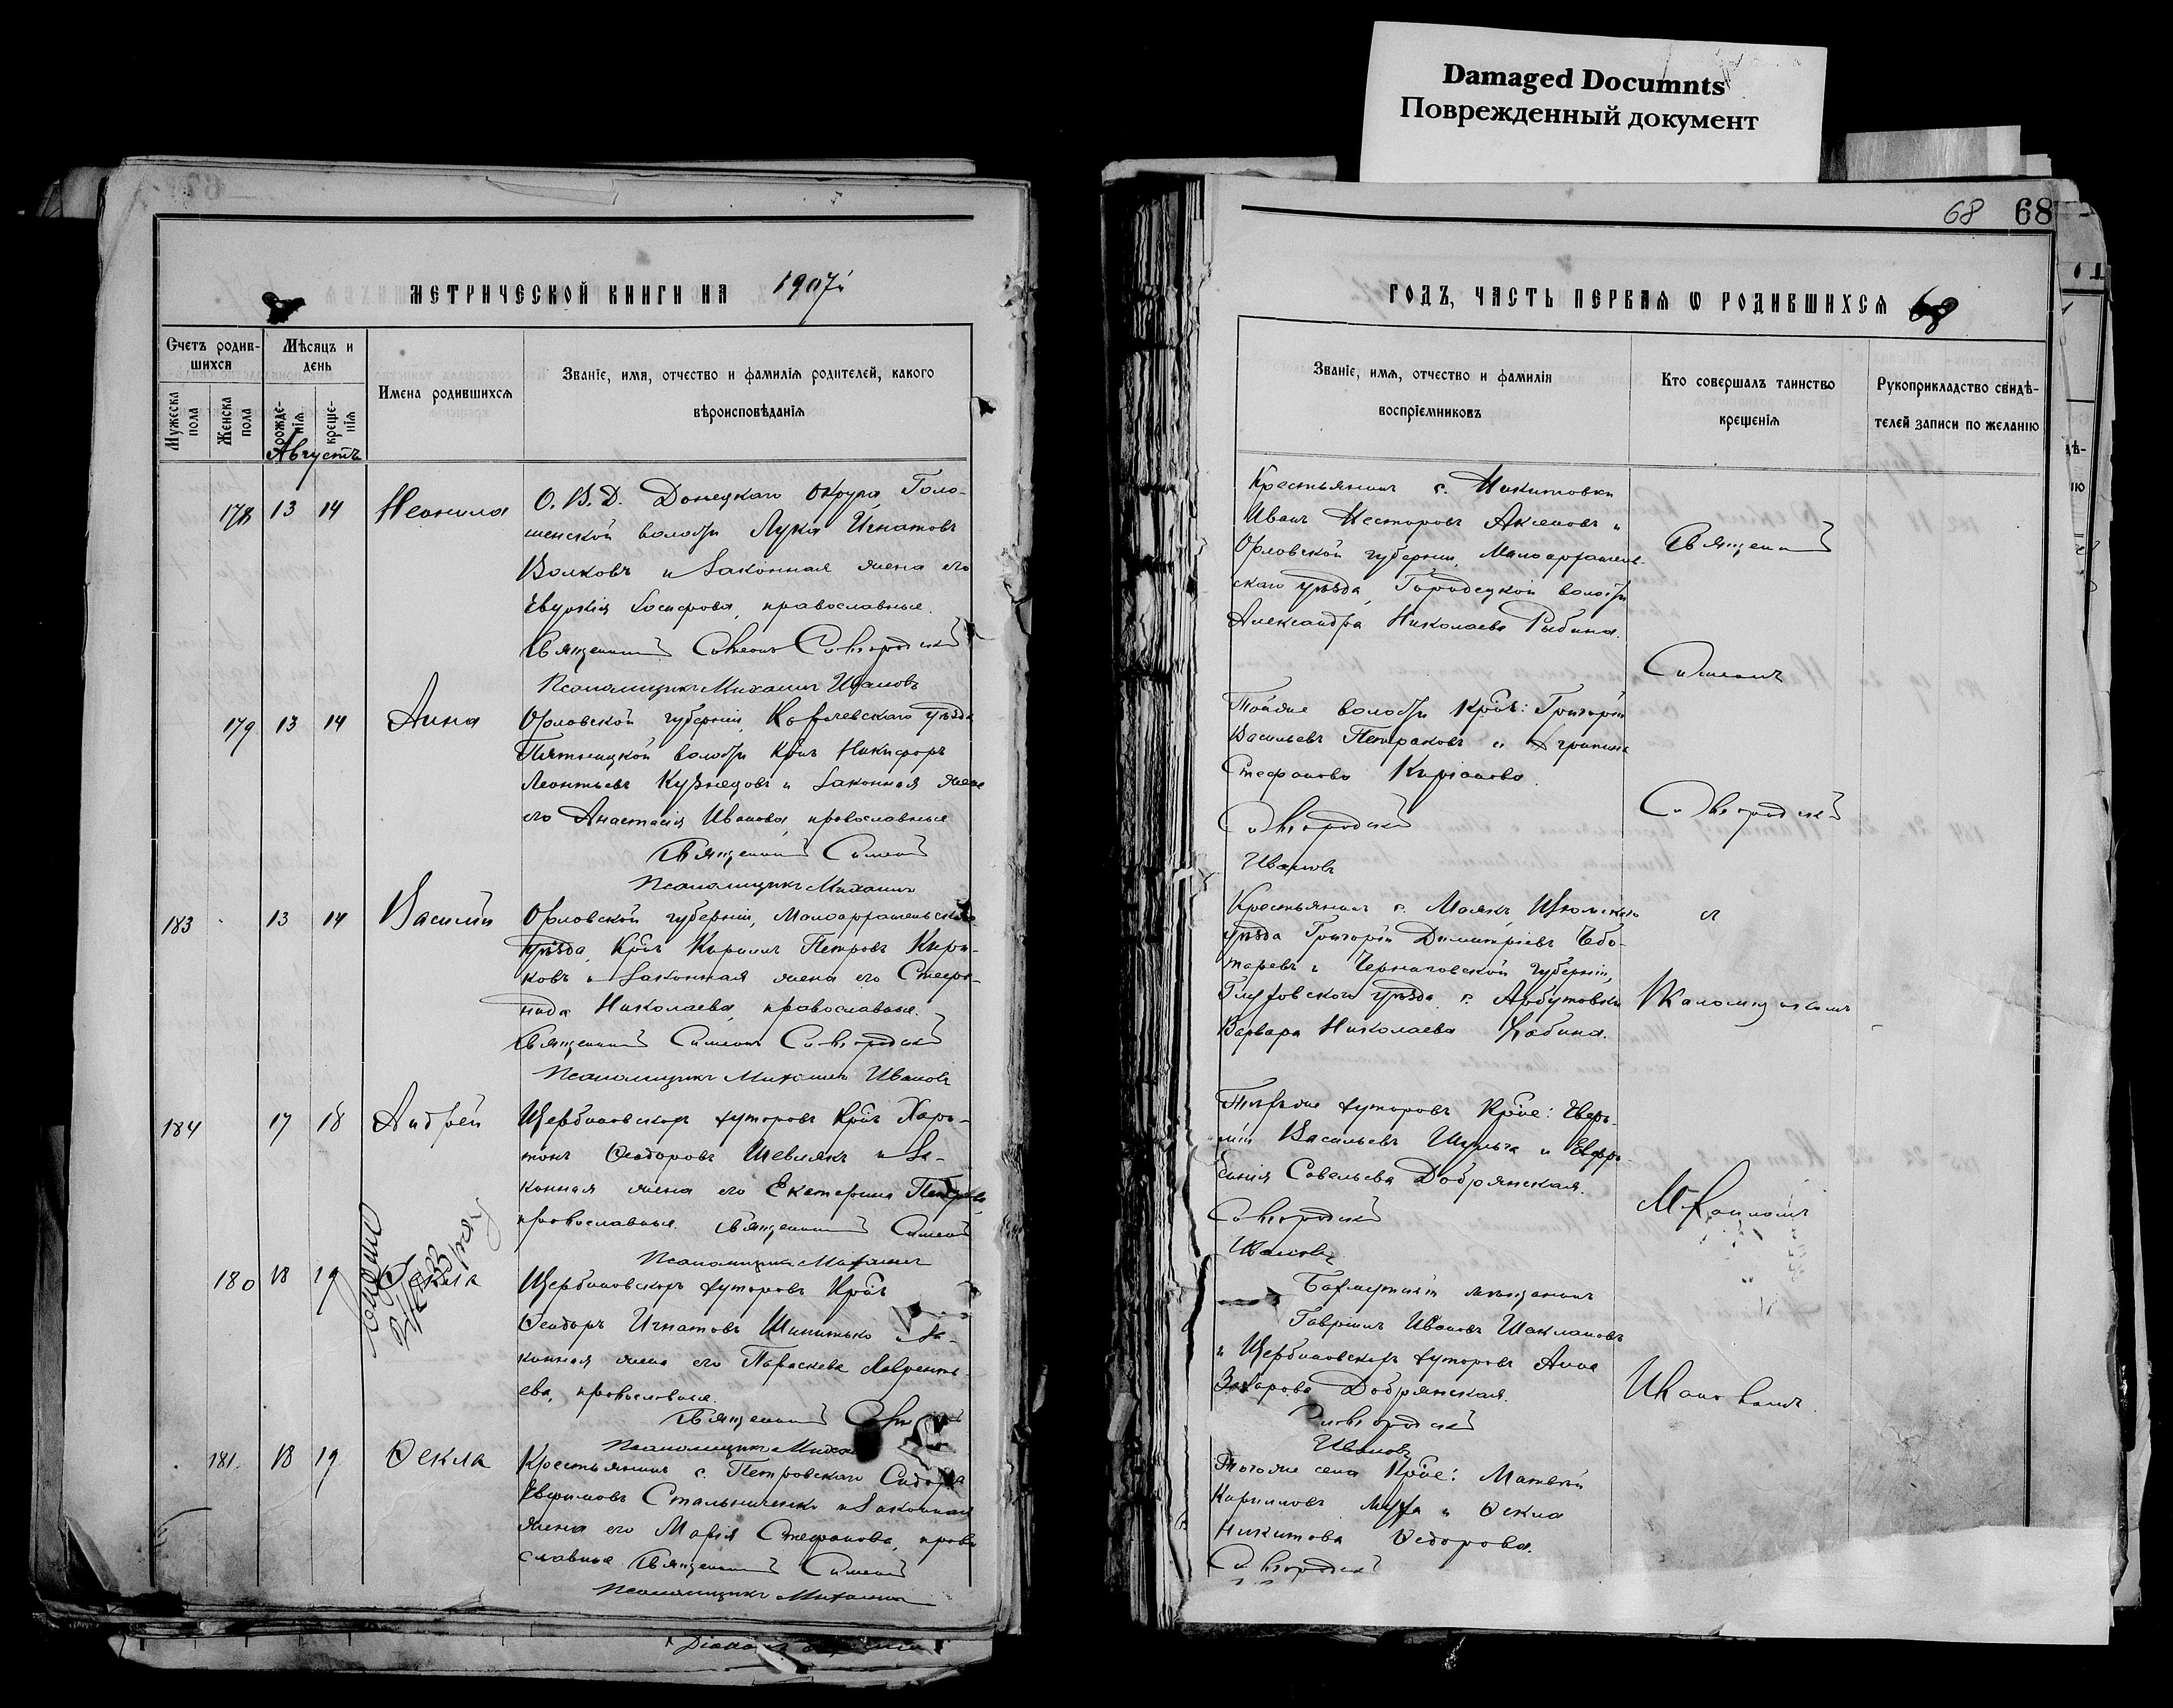 Damaged Documnts
Поврежденный документ
68 68
МЕТРИЧЕСКОЙ КНИГИ НА 1907
Счетъ родив-
шихся
Мѣсяцъ и
день
Мужеска
пола
Женска
пола
рожде-
нія
креще-
нія
Имена родившихся
Званіе, имя, отчество и фамилія родителей, какого
вѣроисповѣданія
Августъ
178 13 14 Неонила
О. В. Д. Донецкаго Округа, Голо-
Лука Игнатовъ
Волковъ и законная жена его
Евдокія православные.
Священникъ Симеонъ
Псаломщикъ Михаилъ Ивановъ
179 13 14 Анна
Орловской губерніи, Карачевскаго уѣзда
Пятницкой волости Кр̃нъ Никифоръ
Леонтьевъ Кузнецовъ и законная жена
его Анастасія Иванова, православные
Священникъ Симеонъ
Псаломщикъ Михаилъ
183 13 14 Василій
Орловской губерніи, Малоархангельскаго
уѣзда, Кр̃нъ Кириллъ Петровъ
и законная жена его Стефа-
нида Николаева, православные.
Священникъ Симеонъ
Псаломщикъ Михаилъ Ивановъ
184 17 18 Андрей
Щербиновскихъ хуторовъ Кр̃нъ Хари-
тонъ Ѳеодоровъ Шевлякъ и за-
конная жена его Екатерина Петрова,
православные. Священникъ Симеонъ
Псаломщикъ Михаилъ
180 18 19 Ѳекла
Щербиновскихъ хуторовъ Кр̃нъ
Ѳеодоръ Игнатовъ и за-
конная жена его Параскева Лаврентъ-
ева, православные.
Священникъ
Псаломщикъ
181 18 19 Ѳекла
Крестьянинъ с. Петровскаго Сидоръ
Евфимовъ и законная
жена его Марія Стефанова, право
славные Священникъ Симеонъ
Псаломщикъ Михаилъ
ГОДЪ, ЧАСТЬ ПЕРВАЯ Ѡ РОДИВШИХСЯ 68
Званіе, имя, отчество и фамилія
воспріемниковъ
Кто совершалъ таинство
крещенія
Рукоприкладство свидѣ-
телей записи по желанію
Крестьянинъ с. Никитовки
Иванъ Несторовъ Аксеновъ и
Орловской губерніи, Малоархангель-
скаго уѣзда, Городецкой волости
Александра Николаева Рыбина.
Священникъ
Симеонъ
Тойже волости Кр̃не: Григорій
Васильевъ Петраковъ и Агрипина
Стефанова
Ивановъ
Крестьянинъ с. Маякъ, Изюмскаго
уѣзда Григорій Димитріевъ Чебо-
таревъ и Черниговской губерніи,
Глуховскаго уѣзда с.
Варвара Николаева
съ
Псаломщикомъ
хуторовъ Кр̃не:
Васильевъ Шульга и Евфро-
синія Савельева Добрянская.
Ивановъ
Михаиломъ
Бахмутскій мѣщанинъ
Гавріилъ Ивановъ
и Щербиновскихъ хуторовъ Анна
Захарова Добрянская.
Ивановъ
Ивановымъ.
Тогоже села Кр̃не: Матвѣй
Кирилловъ и Ѳекла
Никитова Ѳедорова.